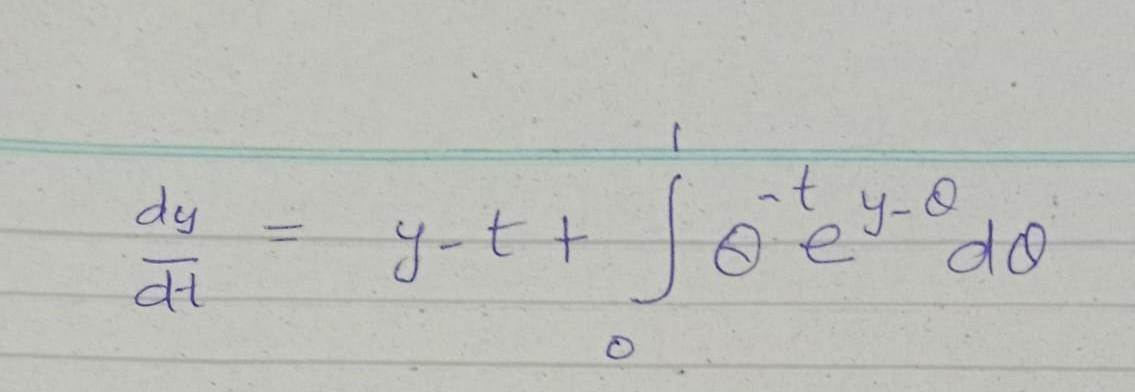 dy/dt = y - t + ∫₀¹ θ^{-t} e^{y-θ} dθ